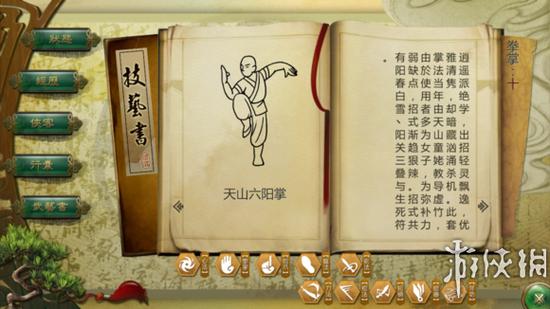 狀態
經歷
俠客
行囊
武藝書
技藝書
天山六阳掌
拳掌：十
逍遥派绝学，出招轻灵飘逸，优
雅清隽，却暗藏汹涌杀机。此套
掌法当年由天山童姥教导虚竹，
由於使用者多为女子，为弥补力
弱缺点，招式渐趋狠辣。招式共
有阳春白雪、阳关三叠与生死符
游侠网